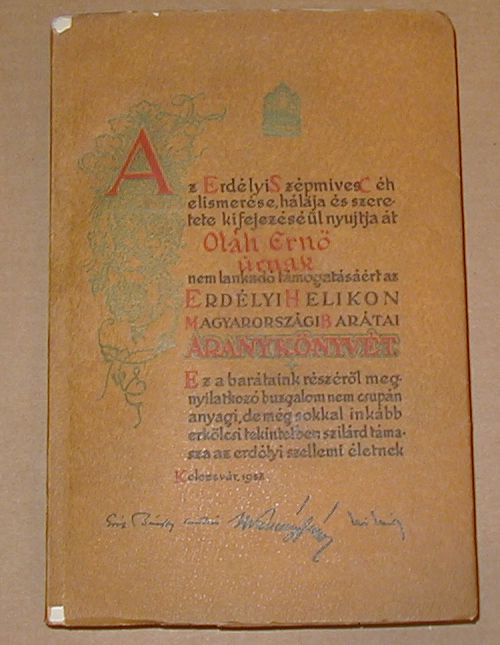 Az Erdélyi Szépmives Céh
elismerése, hálája és szere-
tete kifejezéséül nyujtja át
Oláh Ernő
úrnak
nem lankadó támogatásáért az
ERDÉLYI HELIKON
MAGYARORSZÁGI BARÁTAI
ARANYKÖNYVÉT.
Ez a barátaink részéről meg-
nyilatkozó buzgalom nem csupán
anyagi, de még sokkal inkább
erkölcsi tekintetben szilárd táma-
sza az erdélyi szellemi életnek
Kolozsvár, 19